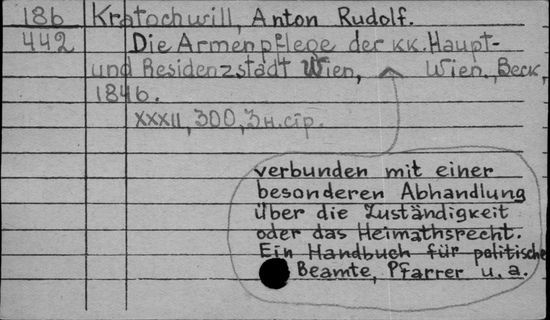 186 Kratochwill, Anton Rudolf.
442 Die Armenpflege der KK. Haupt-
und Residenzstadt Wien, Wien, Beck,
1846.
XXXII, 300, 3н. стр.
verbunden mit einer
besonderen Abhandlung
über die Zuständigkeit
oder das Heimathsrecht.
Ein Handbuch für politische
Beamte, Pfarrer u. a.